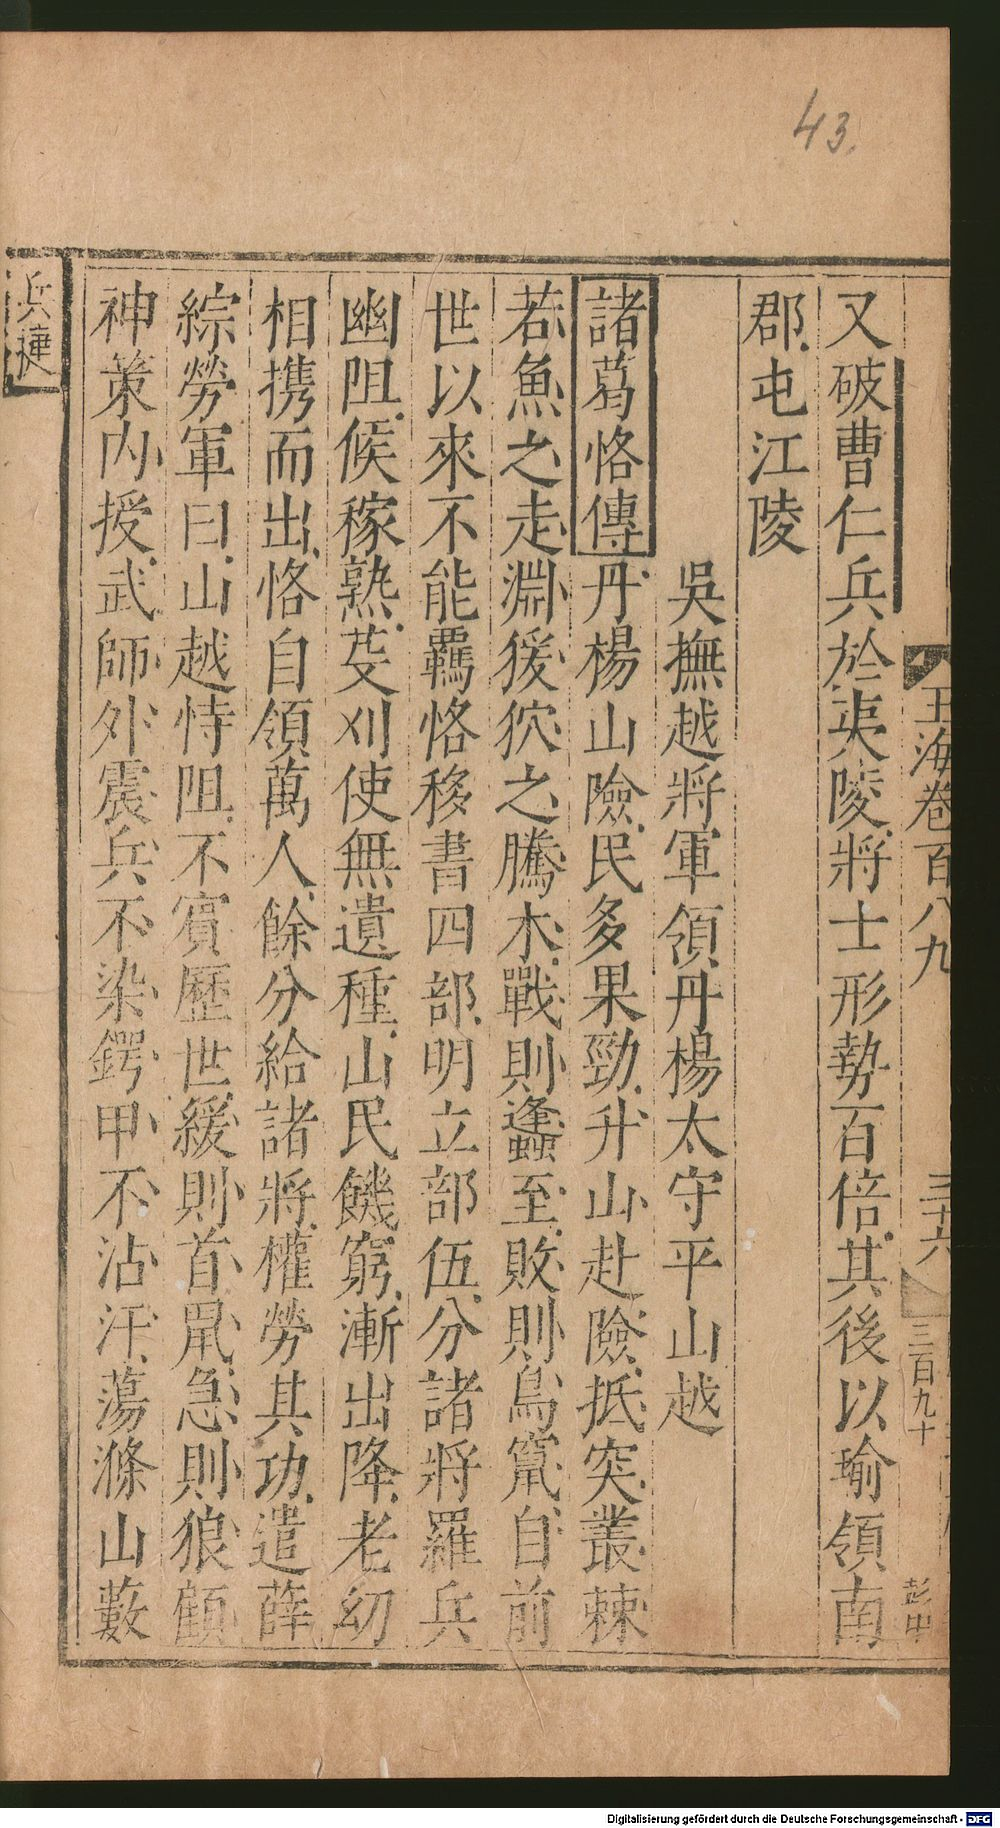 43.
玉海卷百八九
三十六
三百九十
又破曹仁兵於夷陵將士形勢百倍其後以瑜領南
郡屯江陵
吳撫越將軍領丹楊太守平山越
諸葛恪傳丹楊山險民多果勁升山赴險抵突叢棘
若魚之走淵猨狖之騰木戰則蠭至敗則鳥竄自前
世以來不能羈恪移書四部明立部伍分諸將羅兵
幽阻候稼熟芟刈使無遺種山民饑窮漸出降老幼
相携而出恪自領萬人餘分給諸將權勞其功遣薛
綜勞軍曰山越恃阻不賓歷世緩則首鼠急則狼顧
神策內授武師外震兵不染鍔甲不沾汗蕩滌山藪
兵捷
Digitalisierung gefördert durch die Deutsche Forschungsgemeinschaft - DFG